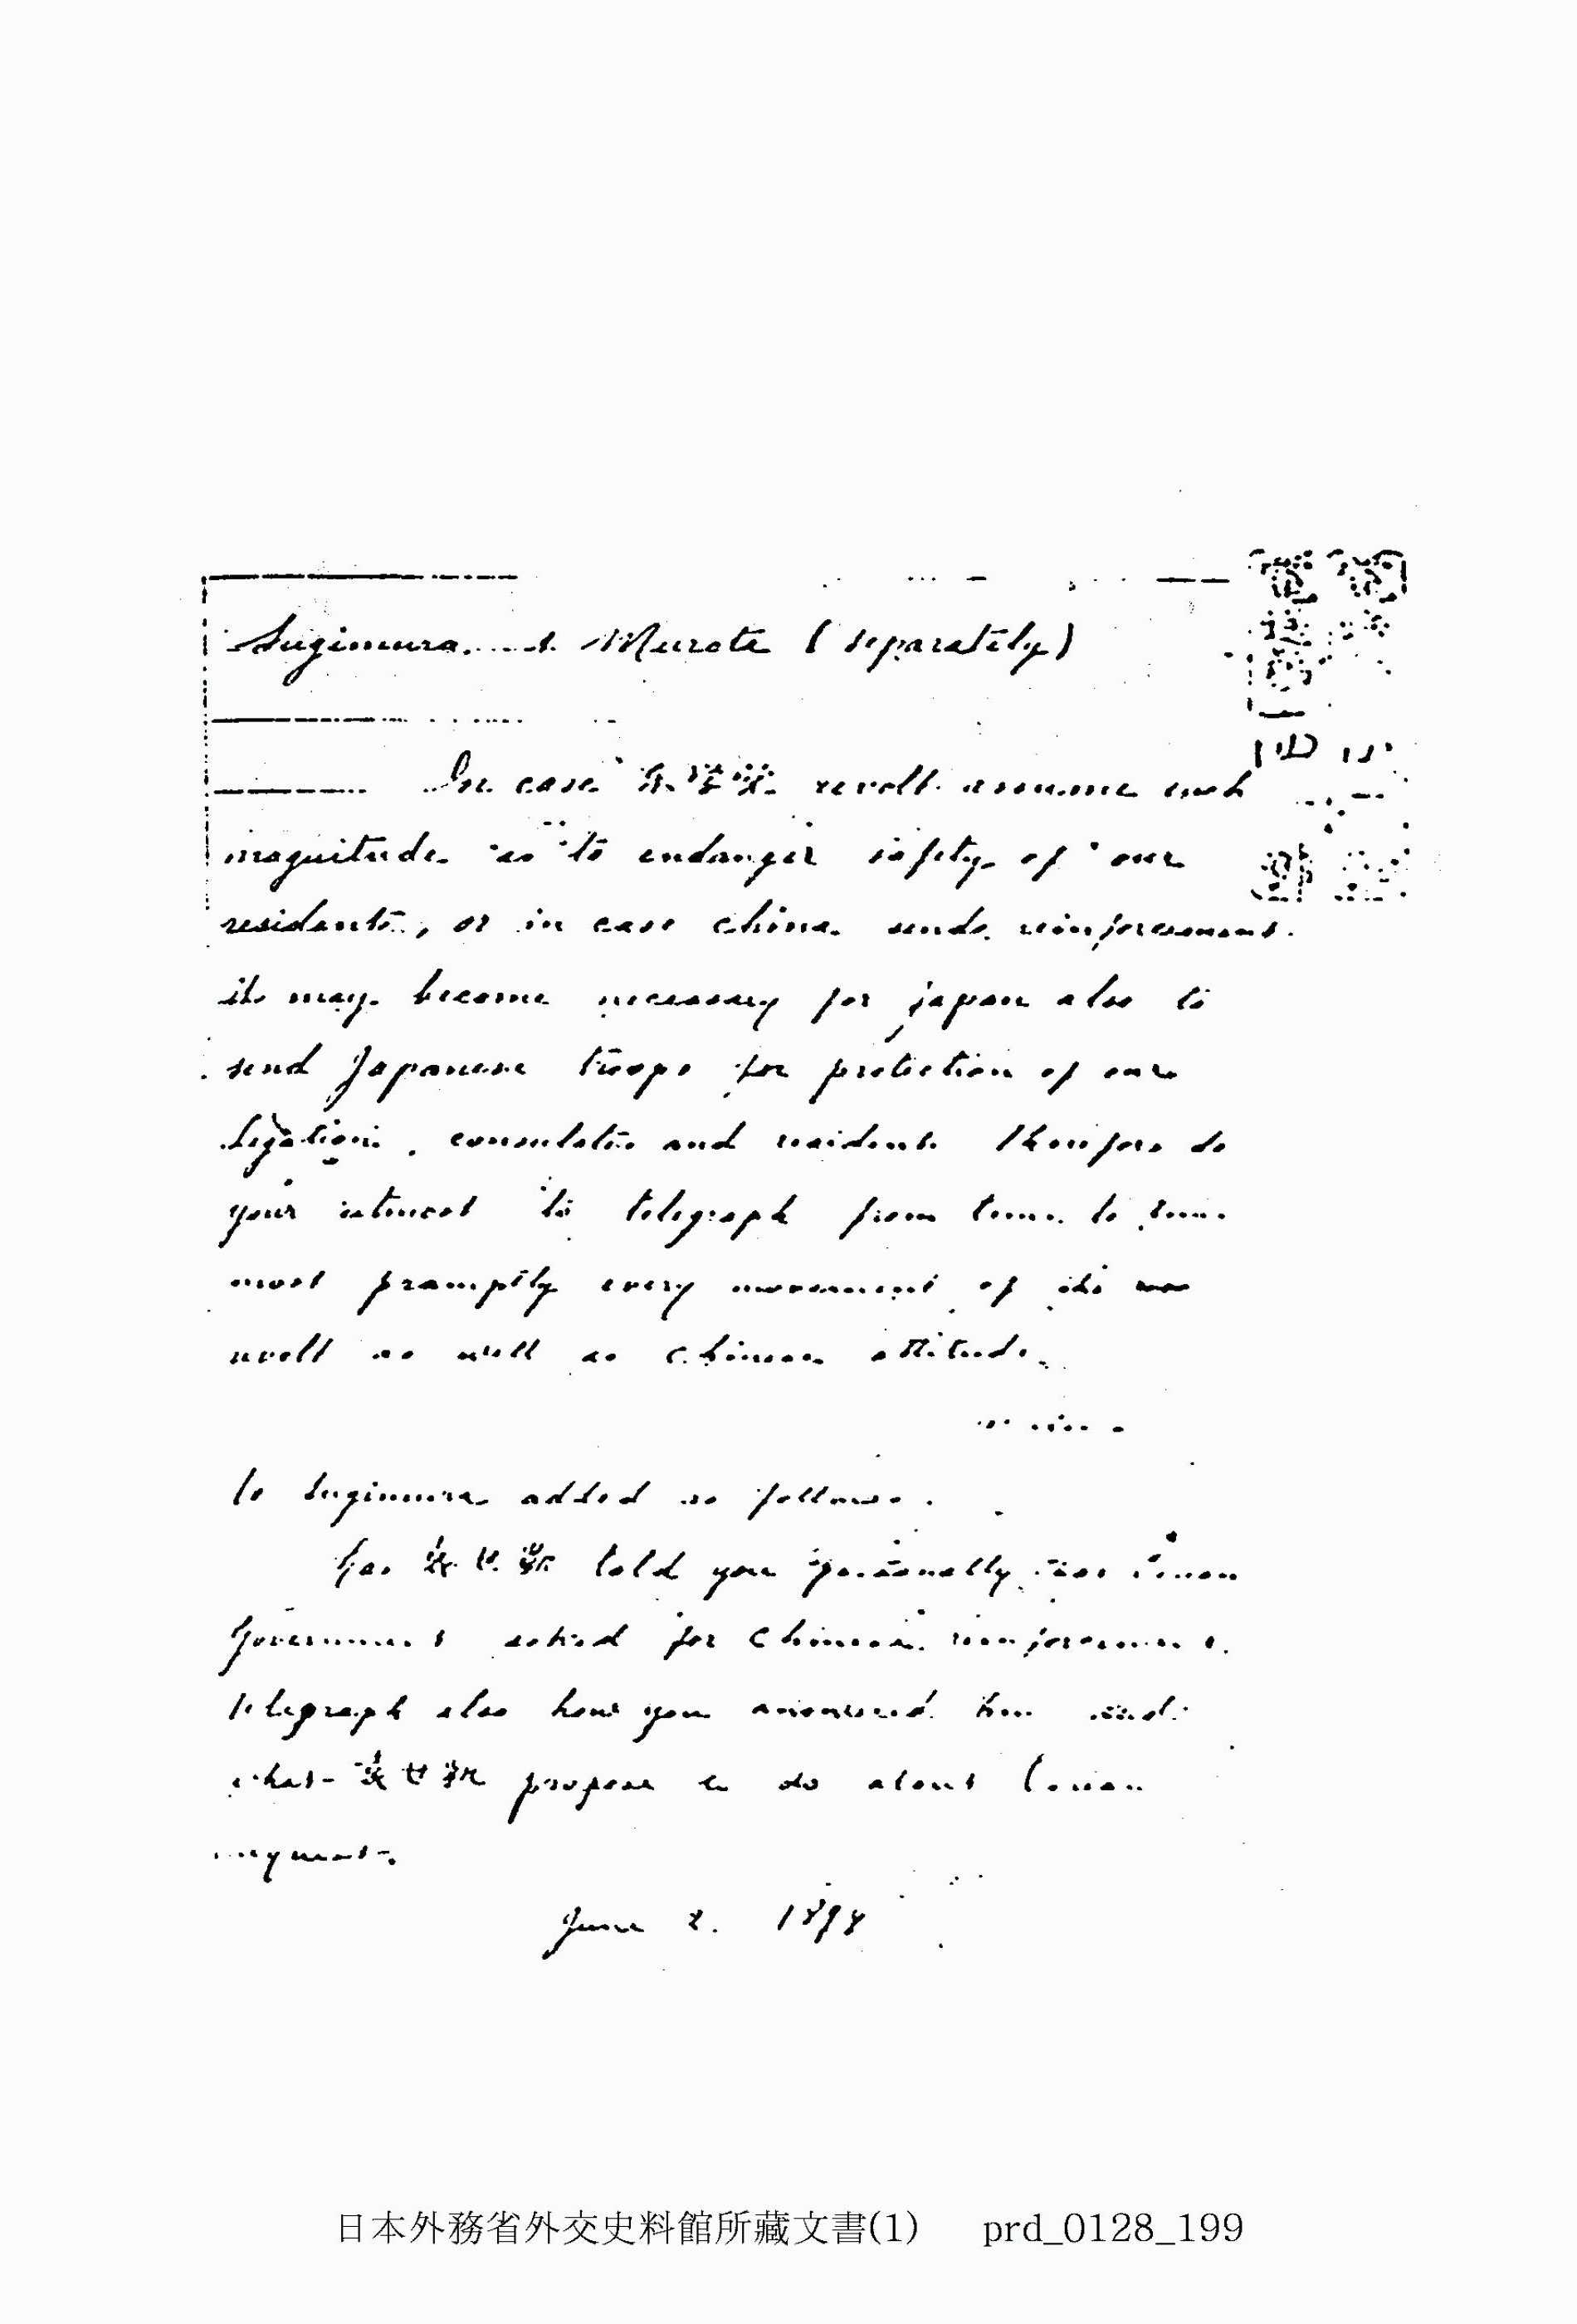 Sugimura Murota (separately)
In case 東學黨 revolt assume such
magnitude as to endanger safety of our
residents, or in case China sends reinforcement
it may become necessary for Japan also to
send Japanese troops for protection of our
Legation, consulates and residents Therefore do
your utmost to telegraph from time to time
most promptly every movement of the
revolt as well as Chinese attitude.
To Sugimura added as follows.
Has 袁世凱 told you personally Corean
Government asked for Chinese reinforcement.
Telegraph also how you answered him and
what 袁世凱 propose to do about Corean
request.
June 2. 1894
日本外務省外交史料館所藏文書(1) prd_0128_199